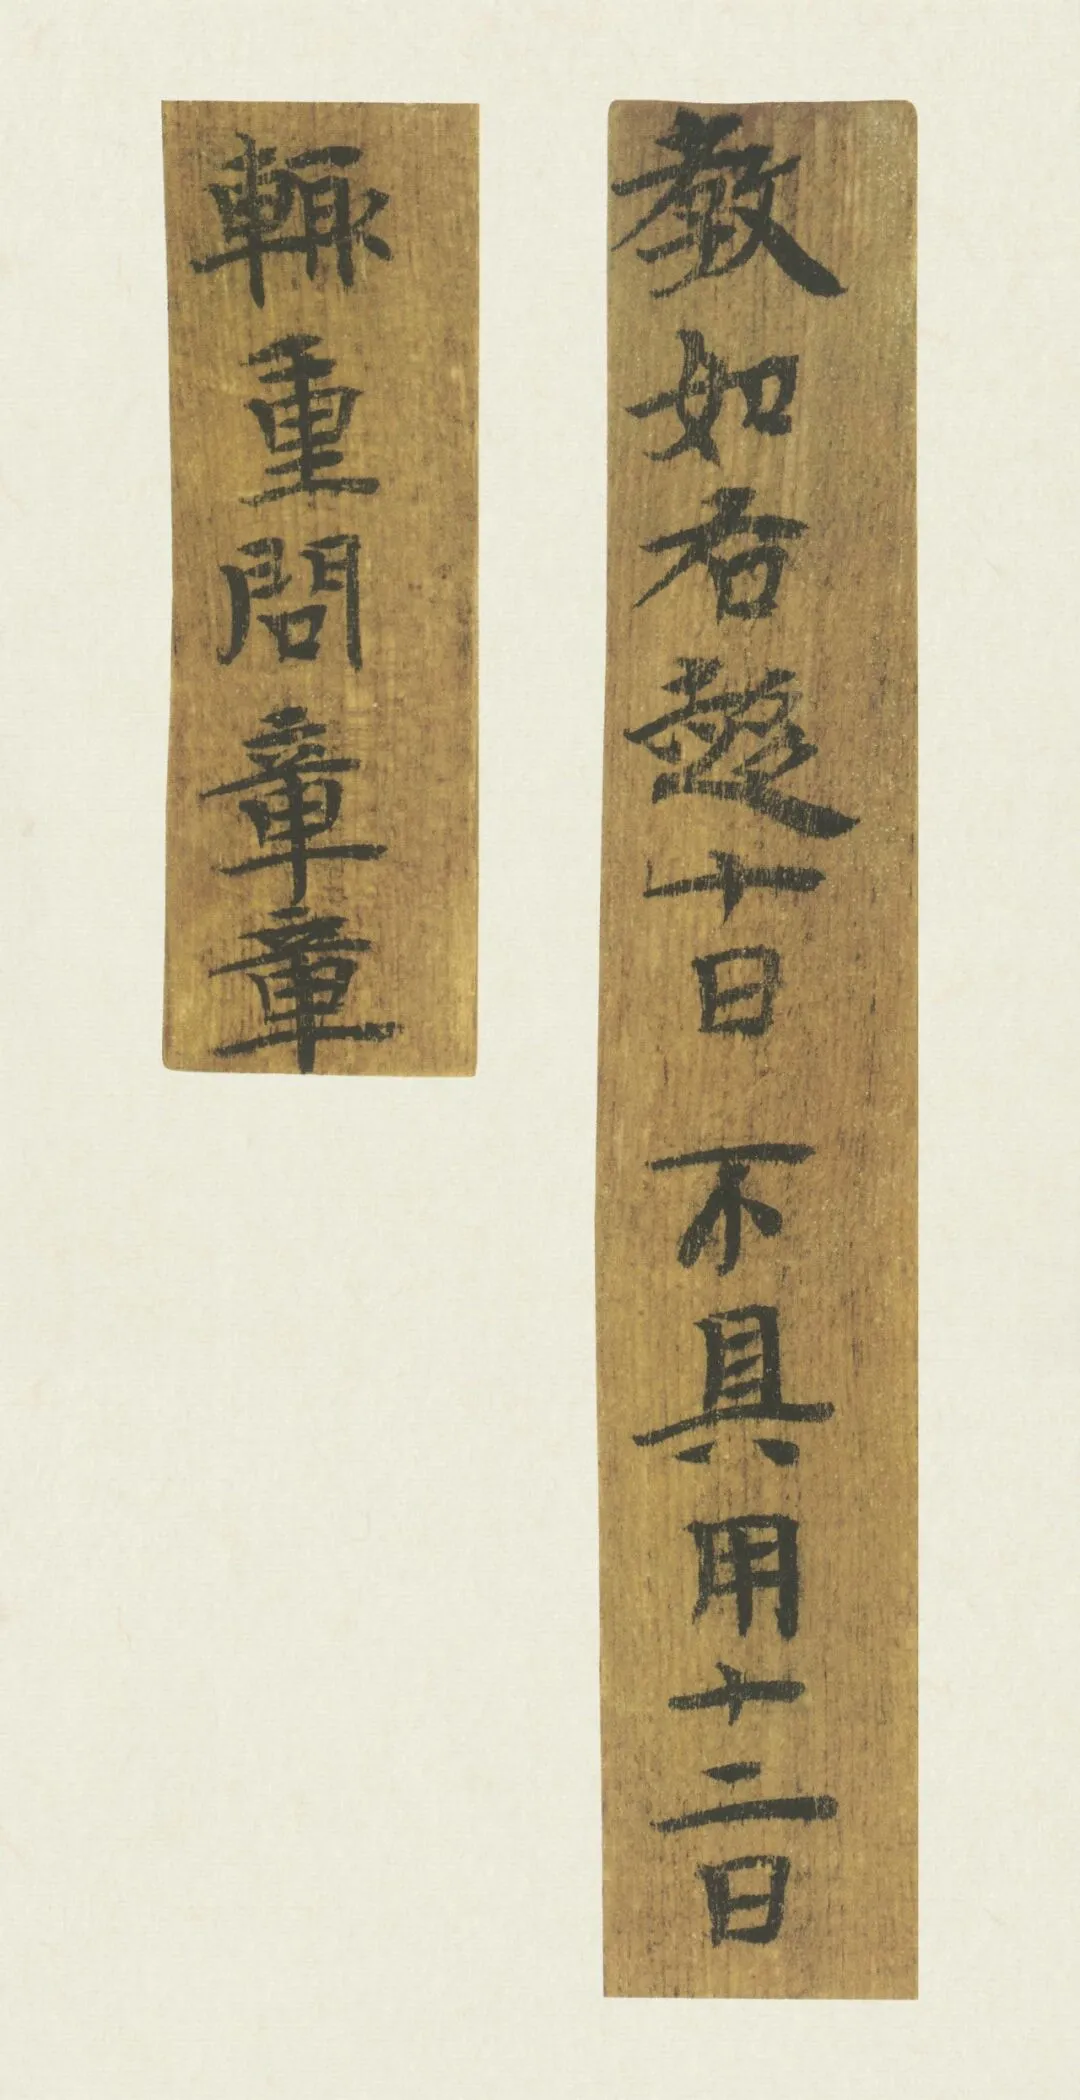 教如右愆十日 不具用十二日
輒重問章章